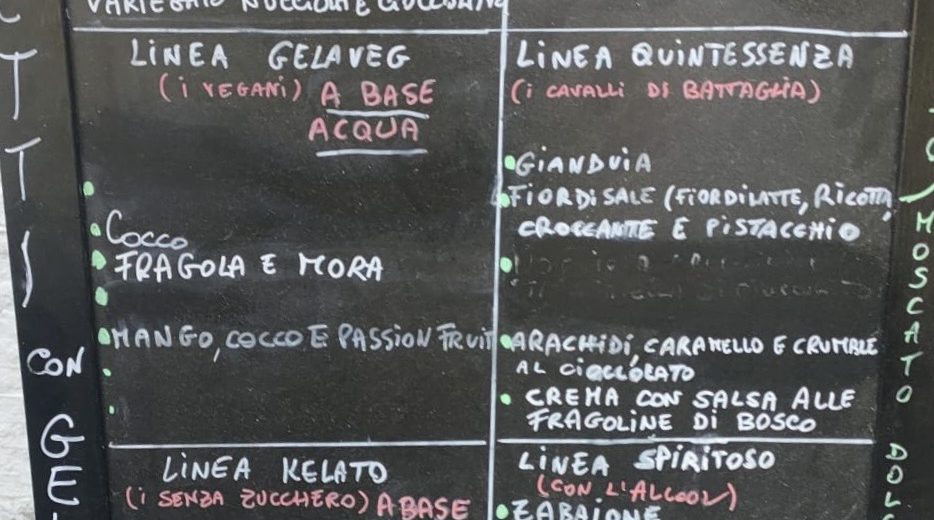 VARIEGATO NOCCIOLA E
LINEA GELAVEG
(i VEGANI) A BASE
ACQUA
COCCO
FRAGOLA E MORA
MANGO, COCCO E PASSION FRUIT
LINEA QUINTESSENZA
(i CAVALLI DI BATTAGLIA)
GIANDUIA
FIORDISALE (FIORDILATTE, RICOTTA,
CROCCANTE E PISTACCHIO
ARACHIDI, CARAMELLO E CRUMBLE
AL CIOCCOLATO
CREMA CON SALSA ALLE
FRAGOLINE DI BOSCO
LINEA KELATO
(i SENZA ZUCCHERO) A BASE
LINEA SPIRITOSO
(CON L'ALCOOL)
ZABAIONE
CON
GE
MOSCATO